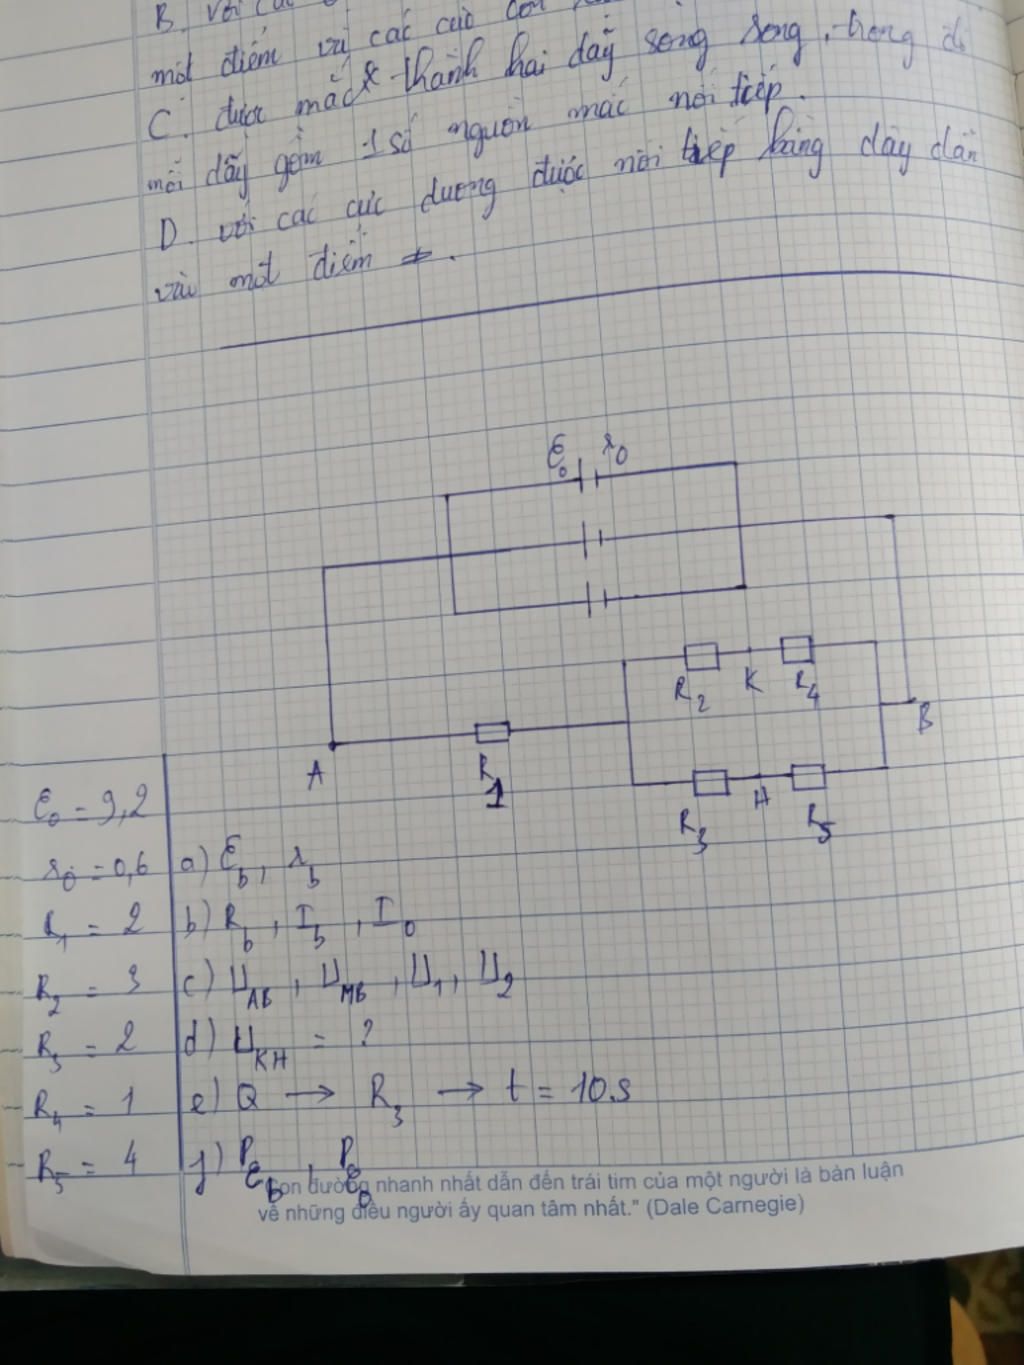 B. với các
một điểm và các cực còn
C. được mắc thành hai dãy song song, trong đó
mỗi dãy gồm 1 số nguồn mắc nối tiếp.
D. với các cực dương được nối tiếp bằng dây dẫn
vào một điểm
Ɛ₀ r₀
R₂ K R₄
B
A R₁
R₃ H R₅
Ɛ₀ = 9,2
r₀ = 0,6 a) Ɛb, rb
R₁ = 2 b) Rb, Ib, I₀
R₂ = 3 c) UAB, UMB, U₁, U₂
R₃ = 2 d) UKH = ?
R₄ = 1 e) Q → R₃ → t = 10s
R₅ = 4 f) PƐb, PƐ₀
"Con đường nhanh nhất dẫn đến trái tim của một người là bàn luận
về những điều người ấy quan tâm nhất." (Dale Carnegie)